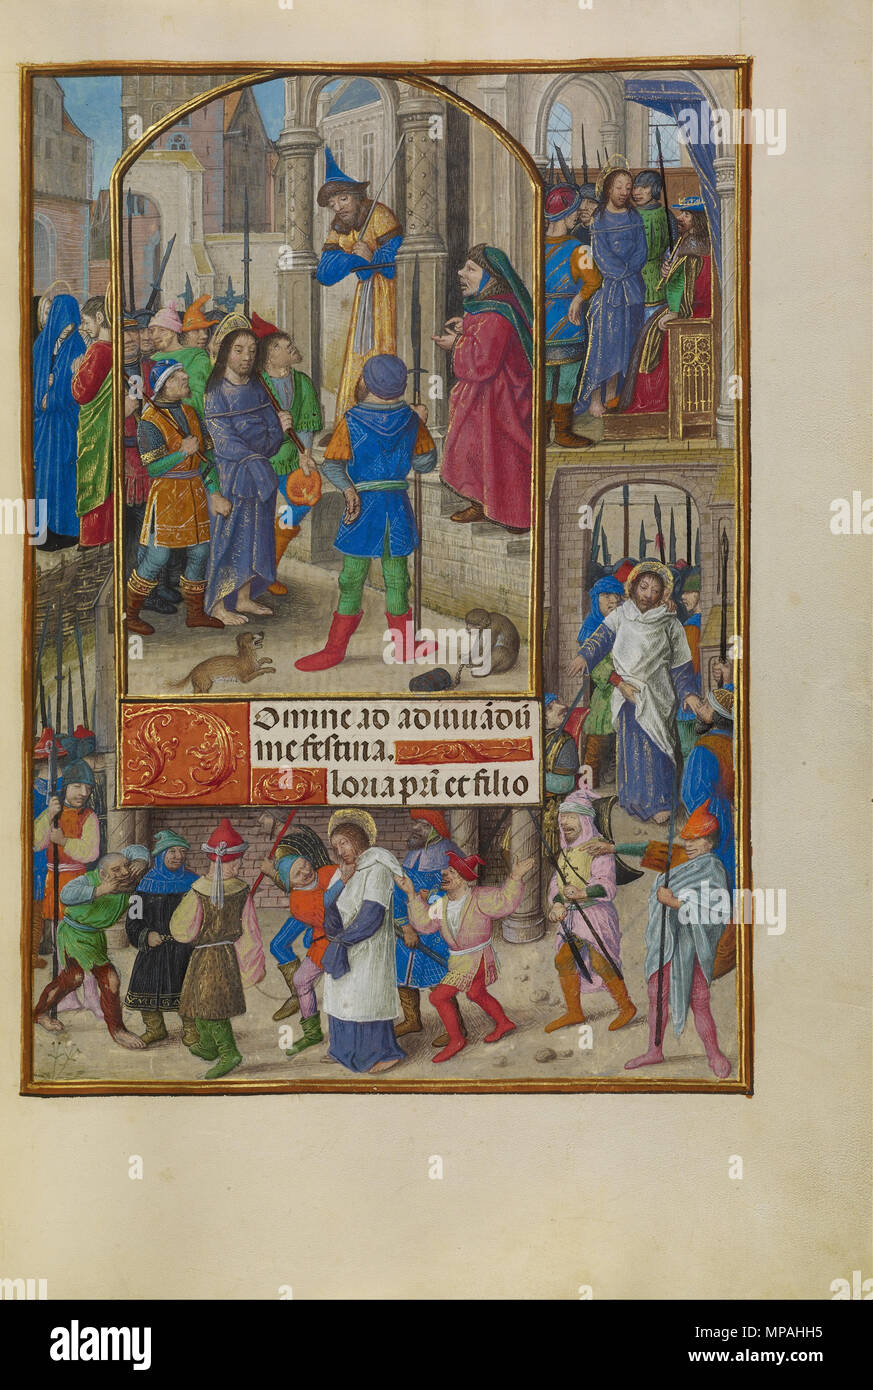 Domine ad adiuuãdũ
me festina.
Gloria pr̃i et filio
alamy
Image ID: MPAHH5
www.alamy.com